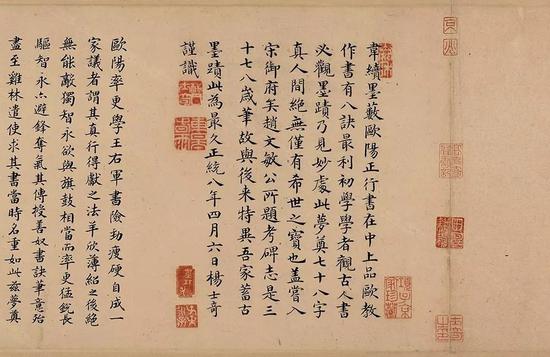 韋續墨藪歐陽正行書在中上品歐教
作書有八訣最利初學學者觀古人書
必觀墨蹟乃見妙處此夢奠七十八字
真人間絶無僅有希世之寶也蓋嘗入
宋御府矣趙文敏公所題考碑志是三
十七八歲筆故與後來特異吾家蓄古
墨蹟此為最久正統八年四月六日楊士奇
謹識
歐陽率更學王右軍書險勁瘦硬自成一
家議者謂其真行得獻之法羊欣薄紹之後絶
無能敵獨智永欲與旗鼓相當而率更猛銳長
驅智永亦避鋒奪氣其傳授善奴書訣筆意殆
盡至雞林遣使求其書當時名重如此兹夢奠